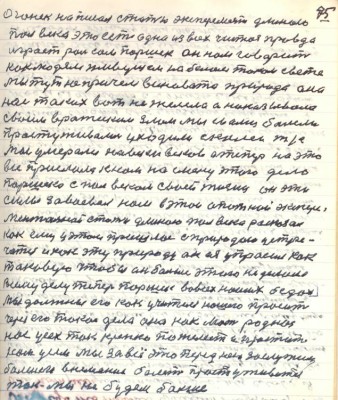 75
Огонек написал статью эксперемент длиною
пол века это есть одна из всех читая правда
играет рои сам поршек он нам говорит
как людям живущем на белом таком свете
мы тут не причем виновата природа она
нас таких вот не желела а наказывала
своим вражеским злом мы с вами болели
простуживалис уходили
мы умерали на веки веков а теперь на это
все пришла к нам на смену этого дело
паршек с пол веком своей жизни он эти
силы завоевал нам в этой опотной экспер
ментальной статьи длиною пол века росказал
как ему у этом пришлось с природою встре-
чатся и как эту природу он ее упрасил как
таковую чтобы она нам этого не делала
делу теперь поршек во всех наших бедах
мы должны его как учителя нашего просить
через его такое дела она как мать родная
нас усех так крепко пожелеет и простит
нам мы за все это перед ней заслужим
большого внимания болеть простуживатся
так мы не будем больше